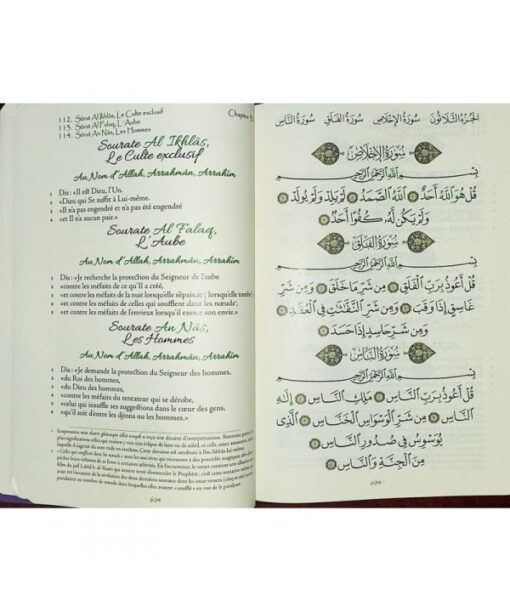 112. Sūrat Al Ikhlâs, Le Culte exclusif
113. Sūrat Al Falaq, L'Aube
114. Sūrat An Nâs, Les Hommes
Chapitre
Sourate Al Ikhlâs,
Le Culte exclusif
Au Nom d'Allah, Arrahmân, Arrahîm
1 Dis : «Il est Dieu, l'Un.
2 «Dieu qui Se suffit à Lui-même.
3 «Il n'a pas engendré et n'a pas été engendré
4 «et Il n'a aucun pair.»
Sourate Al Falaq,
L'Aube
Au Nom d'Allah, Arrahmân, Arrahîm
1 Dis : «Je recherche la protection du Seigneur de l'aube
2 «contre les méfaits de ce qu'Il a créé,
3 «et contre les méfaits de la nuit lorsqu'elle s'épaissit ( lorsqu'elle tombe
4 «et contre les méfaits de celles qui soufflent dans les nœuds²,
5 «et contre les méfaits de l'envieux lorsqu'il exerce son envie.»
Sourate An Nâs,
Les Hommes
Au Nom d'Allah, Arrahmân, Arrahîm
1 Dis : «Je demande la protection du Seigneur des hommes,
2 «du Roi des hommes,
3 «du Dieu des hommes,
4 «contre les méfaits du tentateur qui se dérobe,
5 «celui qui insuffle ses suggestions dans le cœur des gens,
6 «qu'il soit d'entre les djinns ou les hommes.»
604
الجزء الثلاثون سورة الإخلاص سورة الفلق سورة الناس
سورة الإخلاص
بسم الله الرحمن الرحيم
قُلْ هُوَ ٱللَّهُ أَحَدٌ ١ ٱللَّهُ ٱلصَّمَدُ ٢ لَمْ يَلِدْ وَلَمْ يُولَدْ ٣
وَلَمْ يَكُن لَّهُۥ كُفُوًا أَحَدٌۢ ٤
سورة الفلق
بسم الله الرحمن الرحيم
قُلْ أَعُوذُ بِرَبِّ ٱلْفَلَقِ ١ مِن شَرِّ مَا خَلَقَ ٢ وَمِن شَرِّ
غَاسِقٍ إِذَا وَقَبَ ٣ وَمِن شَرِّ ٱلنَّفَّٰثَٰتِ فِى ٱلْعُقَدِ ٤
وَمِن شَرِّ حَاسِدٍ إِذَا حَسَدَ ٥
سورة الناس
بسم الله الرحمن الرحيم
قُلْ أَعُوذُ بِرَبِّ ٱلنَّاسِ ١ مَلِكِ ٱلنَّاسِ ٢ إِلَٰهِ
ٱلنَّاسِ ٣ مِن شَرِّ ٱلْوَسْوَاسِ ٱلْخَنَّاسِ ٤ ٱلَّذِى
يُوَسْوِسُ فِى صُدُورِ ٱلنَّاسِ ٥
مِنَ ٱلْجِنَّةِ وَٱلنَّاسِ ٦
٦٠٤